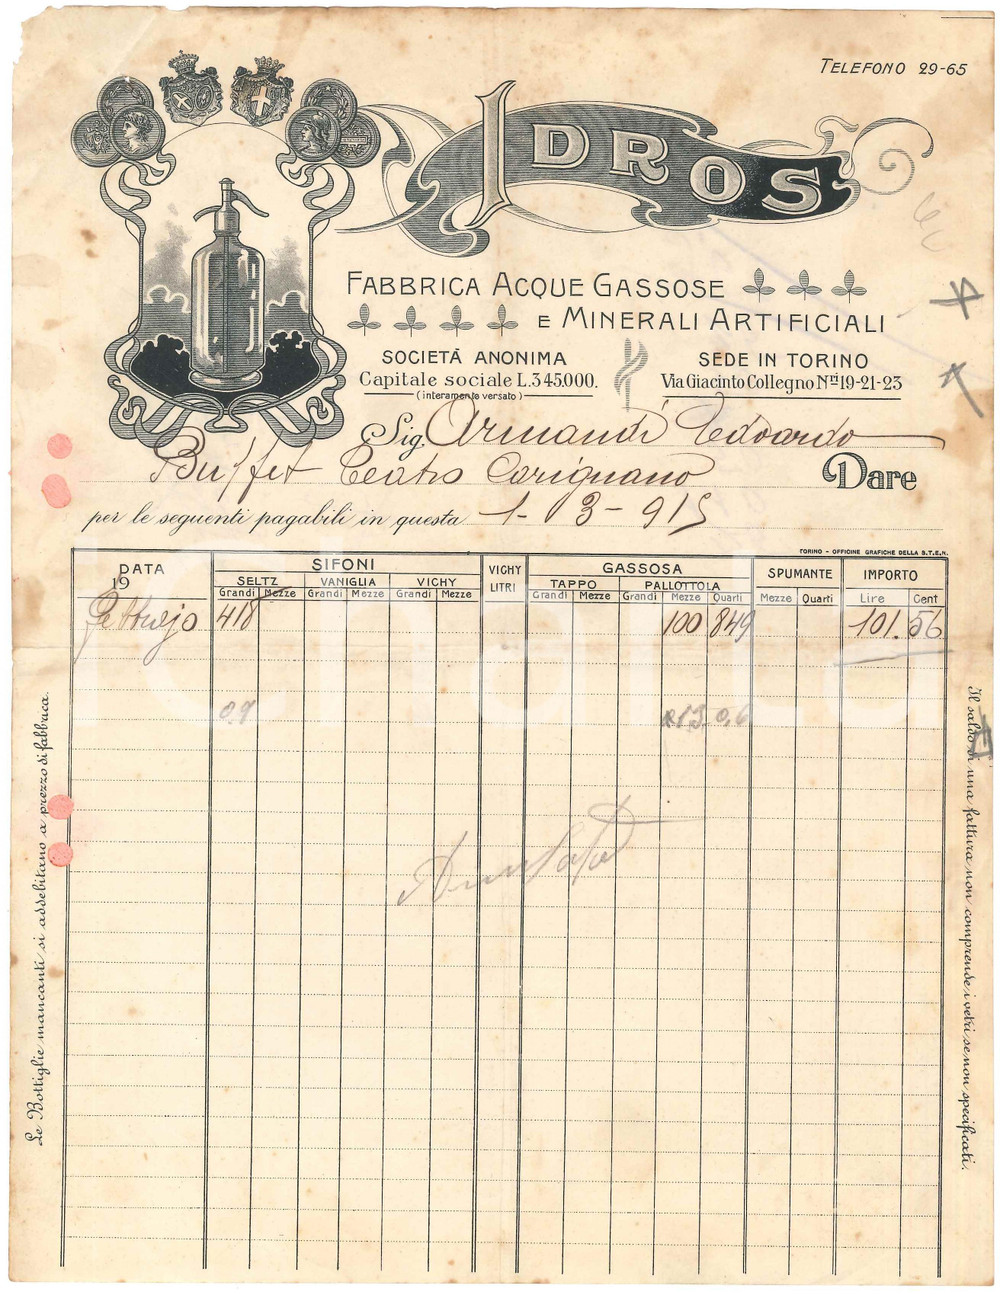 TELEFONO 29-65
IDROS
FABBRICA ACQUE GASSOSE
E MINERALI ARTIFICIALI
SOCIETÀ ANONIMA
Capitale sociale L.345.000.
(interamente versato)
SEDE IN TORINO
Via Giacinto Collegno Nri 19-21-23
Sig. Armandi Edoardo
Buffet Teatro Carignano Dare
per le seguenti pagabili in questa 1-3-915
TORINO - OFFICINE GRAFICHE DELLA S.T.E.N.
DATA SIFONI VICHY LITRI GASSOSA SPUMANTE IMPORTO
19 SELTZ VANIGLIA VICHY TAPPO PALLOTTOLA
Grandi Mezze Grandi Mezze Grandi Mezze Grandi Mezze Grandi Mezze Quarti Mezze Quarti Lire Cent
418 100 849 101. 56
0,7 13 0,6
Annullata
Le Bottiglie mancanti si addebitano a prezzo di fabbrica.
Il saldo di una fattura non comprende i vetri se non specificati.